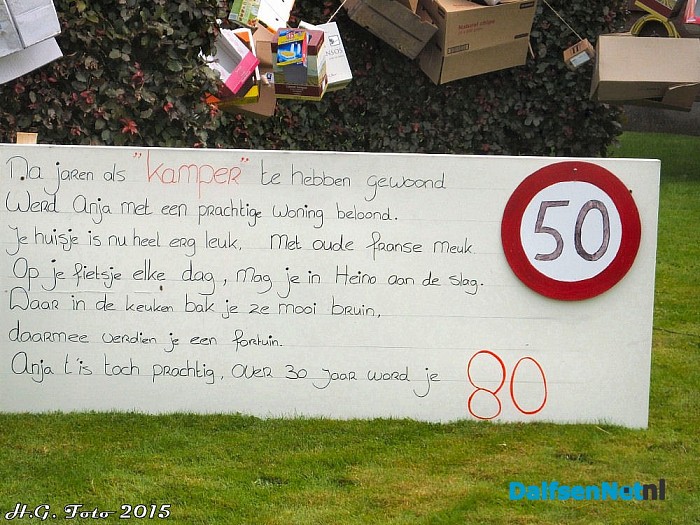 Na jaren als "kamper" te hebben gewoond
Werd Anja met een prachtige woning beloond.
Je huisje is nu heel erg leuk, Met oude franse meuk
Op je fietsje elke dag, mag je in Heino aan de slag.
Daar in de keuken bak je ze mooi bruin,
daarmee verdien je een fortuin.
Anja t'is toch prachtig, over 30 jaar word je 80
50
H.G. Foto 2015
DalfsenNet.nl